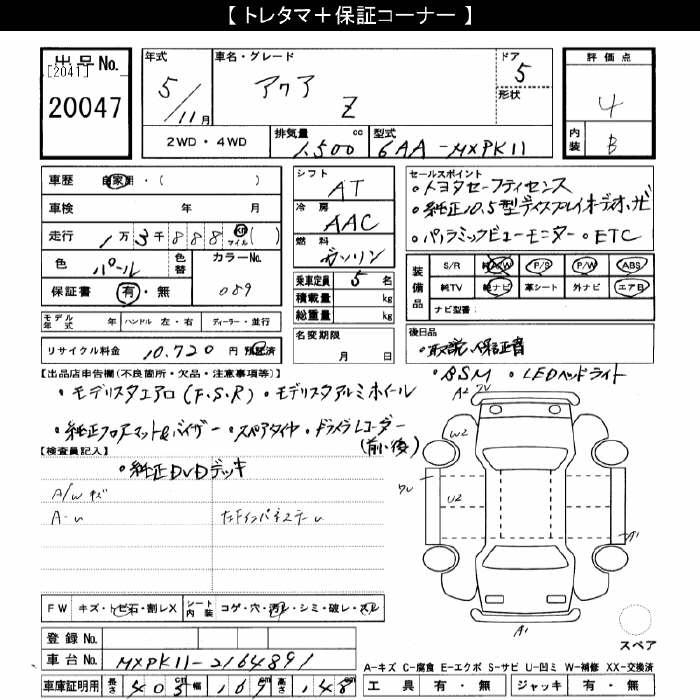 【トレタマ＋保証コーナー】
出品No.
[2041]
20047
年式 5／11月
車名・グレード アクア Z
ドア 5
形状
評価点 4
内装 B
2WD・4WD
排気量 1,500 cc
型式 6AA-MXPK11
車歴 自家用・( )
車検 年 月
走行 1万3千888 Km マイル ( )
色 パール
色替
カラーNo. 089
保証書 有・無
モデル年式 年 ハンドル 左・右 ディーラー・並行
リサイクル料金 10,720 円 預託済
シフト AT
冷房 AAC
燃料 ガソリン
乗車定員 5 名
積載量 kg
総重量 kg
名変期限 月 日
セールスポイント
・トヨタセーフティセンス
・純正10.5型ディスプレイオーディオ・ナビ
・パノラミックビューモニター ・ETC
装備品 S/R 純A/W P/S P/W ABS
純TV 純ナビ 革シート 外ナビ エアB
ナビ型番:
後日品
・取説・保証書
・BSM ・LEDヘッドライト
【出品店申告欄(不良箇所・欠品・注意事項等)】
・モデリスタエアロ(F.S.R) ・モデリスタアルミホイール
・純正フロアマット&バイザー ・スペアタイヤ ・ドラメラレコーダー(前・後)
・純正DVDデッキ
【検査員記入】
A/Wキズ
A-U
FW キズ・トビ石・割レX シート内装 コゲ・穴・汚レ・シミ・破レ・スレ
登録No.
車台No. MXPK11-2164891
車庫証明用 長さ 405cm 幅 169cm 高さ 148cm
A2
W2
U2
A1
スペア
A-キズ C-腐食 E-エクボ S-サビ U-凹ミ W-補修 XX-交換済
工具 有・無 ジャッキ 有・無